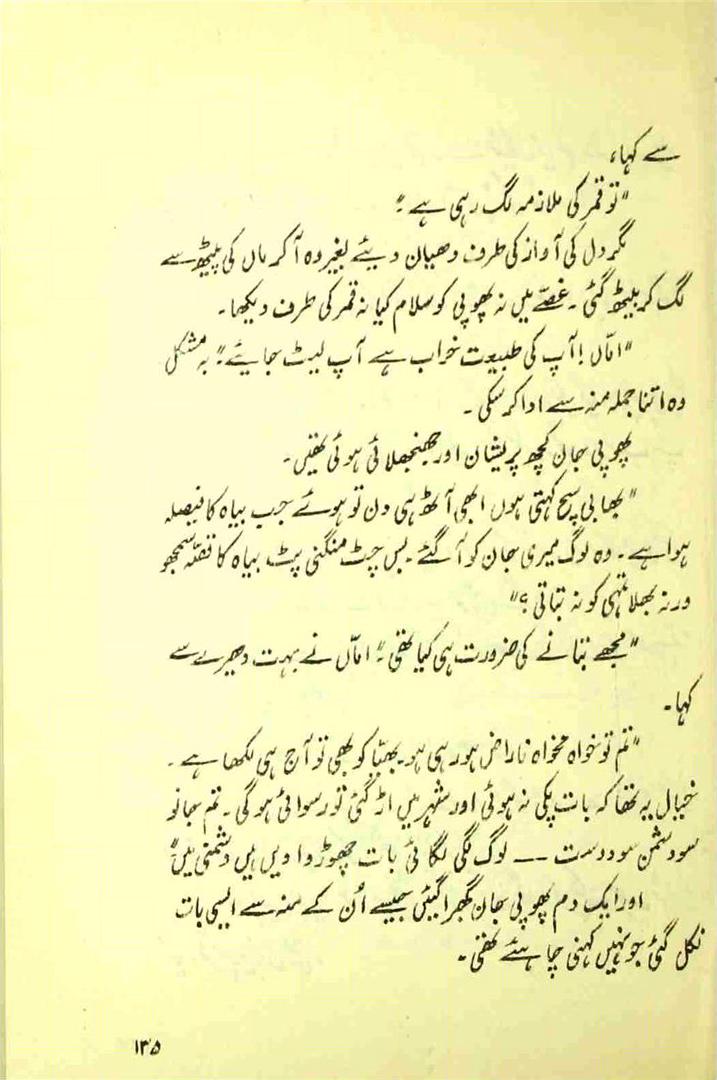 سے کہا،
"تو قمر کی ملازمہ لگ رہی ہے۔"
مگر دل کی آواز کی طرف دھیان دیئے بغیر وہ آ کر ماں کی پیٹھ سے
لگ کر بیٹھ گئی۔ غصّے میں نہ پھوپی کو سلام کیا نہ قمر کی طرف دیکھا۔
"امّاں! آپ کی طبیعت خراب ہے آپ لیٹ جایئے۔" بہ مشکل
وہ اتنا جملہ منہ سے ادا کر سکی۔
پھوپی جان کچھ پریشان اور جھنجھلائی ہوئی تھیں۔
"بھابی سچ کہتی ہوں ابھی آٹھ ہی دن تو ہوئے جب بیاہ کا فیصلہ
ہوا ہے۔ وہ لوگ میری جان کو آ گئے۔ بس چٹ منگنی پٹ بیاہ کا قصّہ سمجھو
ورنہ بھلا تمہی کو نہ بتاتی؟"
"مجھے بتانے کی ضرورت ہی کیا تھی۔" امّاں نے بہت دھیرے سے
کہا۔
"تم تو خواہ مخواہ ناراض ہو رہی ہو۔ بھیّا کو بھی تو آج ہی لکھا ہے۔
خیال یہ تھا کہ بات پکی نہ ہوئی اور شہر میں اڑ گئی تو رسوائی ہو گی۔ تم جانو
سو دشمن سو دوست ـــ لوگ لگی لگائی بات چھوڑوا دیں ہیں دشمنی میں"
اور ایک دم پھوپی جان گھبرا گئیں جیسے اُن کے منہ سے ایسی بات
نکل گئی جو نہیں کہنی چاہئے تھی۔
۱۳۵